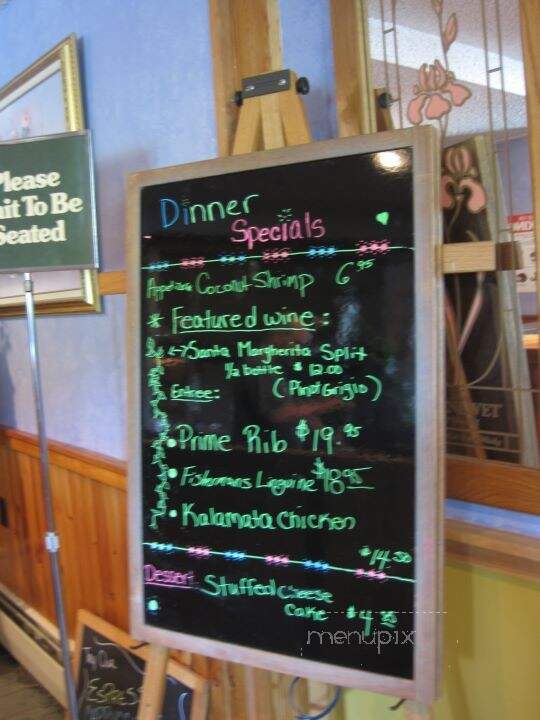 Please
ait To Be
Seated
Dinner
Specials
Appetizer Coconut Shrimp 6.95
* Featured wine :
Santa Margherita Split
1/2 bottle $ 12.00
Entree: (Pinot Grigio)
• Prime Rib $19.95
• Fishermans Linguine $18.95
• Kalamata Chicken
$14.50
Dessert Stuffed Cheese
Cake $4.95
menupix
Try Our
ESPRES